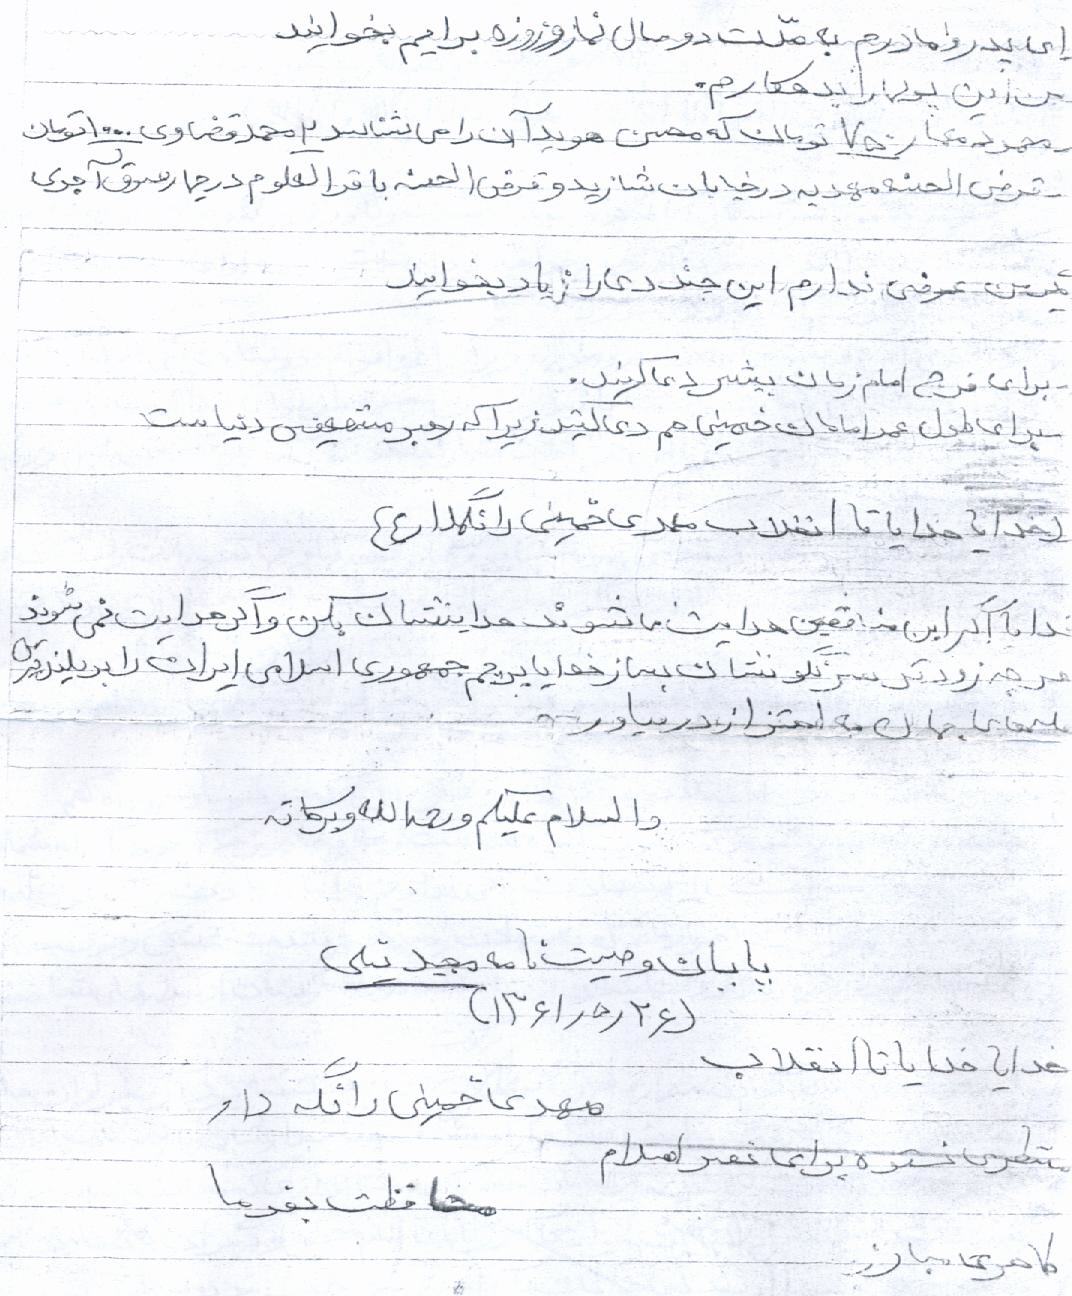 ای پدر و مادرم به مدّت دو سال نماز و روزه برایم بخوانید
من این پولها را بدهکارم.
۷۵۰ تومان که محسن هویدا آن را می شناسد ۲ محمد قضاوی ۱۰۰۰ تومان
قرض الحسنه مهدیه در خیابان شازید و قرض الحسنه باقرالعلوم در چهارسوق آجری
عرضی ندارم این چند دعا را زیاد بخوانید
برای فرج امام زمان بیشتر دعا کنید.
برای طول عمر امامان خمینی هم دعا کنید زیرا که رهبر مستضعفین دنیا است
(خدایا خدایا تا انقلاب مهدی خمینی را نگهدار)
خدایا اگر این منافقین هدایت میشوند هدایتشان بکن و اگر هدایت نمی شوند
هر چه زودتر سرنگونشان بساز خدایا پرچم جمهوری اسلامی ایران را بر بلندترین
قله های جهان به اهتزاز در بیاور
والسلام علیکم و رحمه الله و برکاته
پایان وصیت نامه مجید
(۲۶ ر ۱۳۶۱)
خدایا خدایا تا انقلاب
مهدی خمینی را نگه دار
خسته برای نصر اسلام
محافظت بفرما